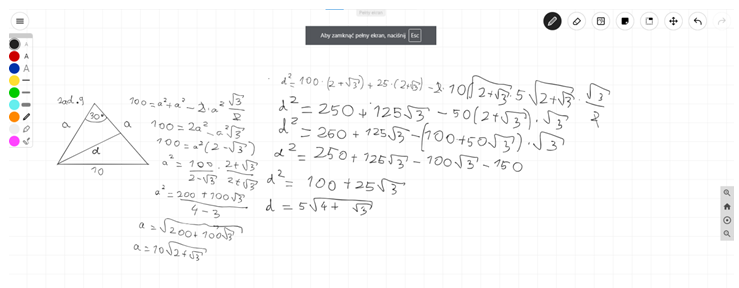 Pełny ekran
Aby zamknąć pełny ekran, naciśnij Esc
A
A
A
zad. 9
30°
a
a
d
10
100 = a² + a² - 2·a² √3/2
100 = 2a² - a²√3
100 = a²(2-√3)
a² = 100/(2-√3) · (2+√3)/(2+√3)
a² = (200 + 100√3)/(4-3)
a = √(200 + 100√3)
a = 10√(2+√3)
d² = 100·(2+√3) + 25·(2+√3) - 2·10√(2+√3)·5√(2+√3)·√3/2
d² = 250 + 125√3 - 50(2+√3)·√3
d² = 260 + 125√3 - (100+50√3)·√3
d² = 250 + 125√3 - 100√3 - 150
d² = 100 + 25√3
d = 5√(4 + √3)